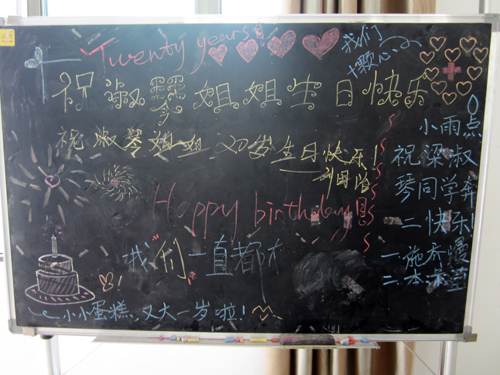 Twenty years!
我们
十颗心
祝淑琴姐姐生日快乐
祝淑琴姐姐 20岁生日快乐!
Happy birthday!
我们一直都在
小小蛋糕,又大一岁啦!
小雨点
祝梁淑
琴同学奔
二快乐!